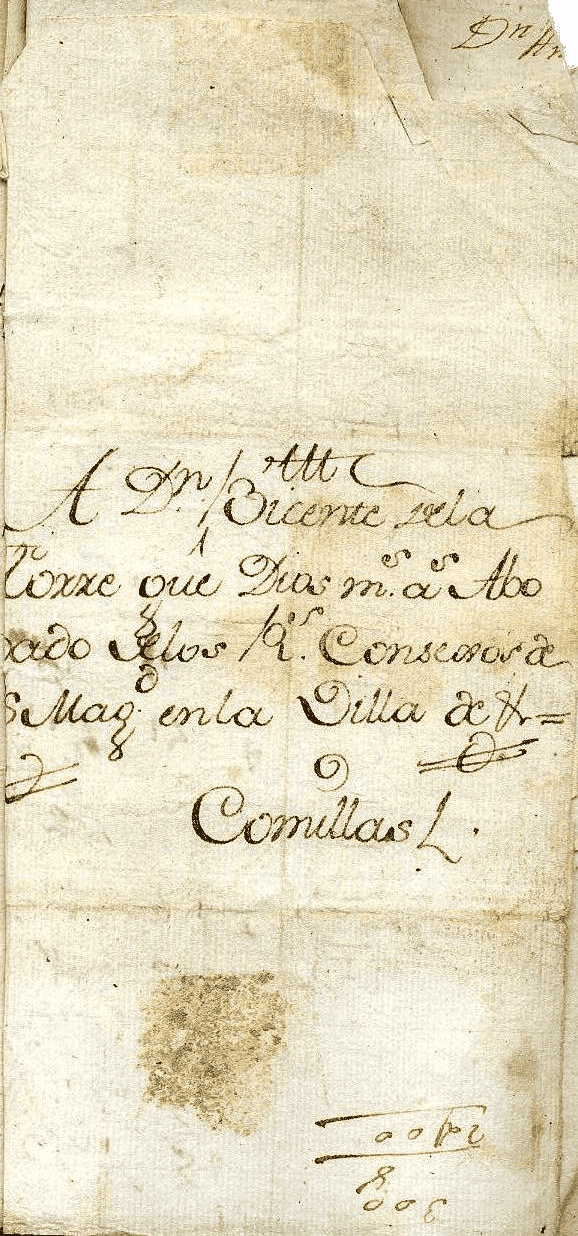 Dn
A Dn Bicente dela
Torre que Dios ms. as. Abo
gado delos Rs. Consexos de
S Magd. en la Villa de &=
Comillas L.